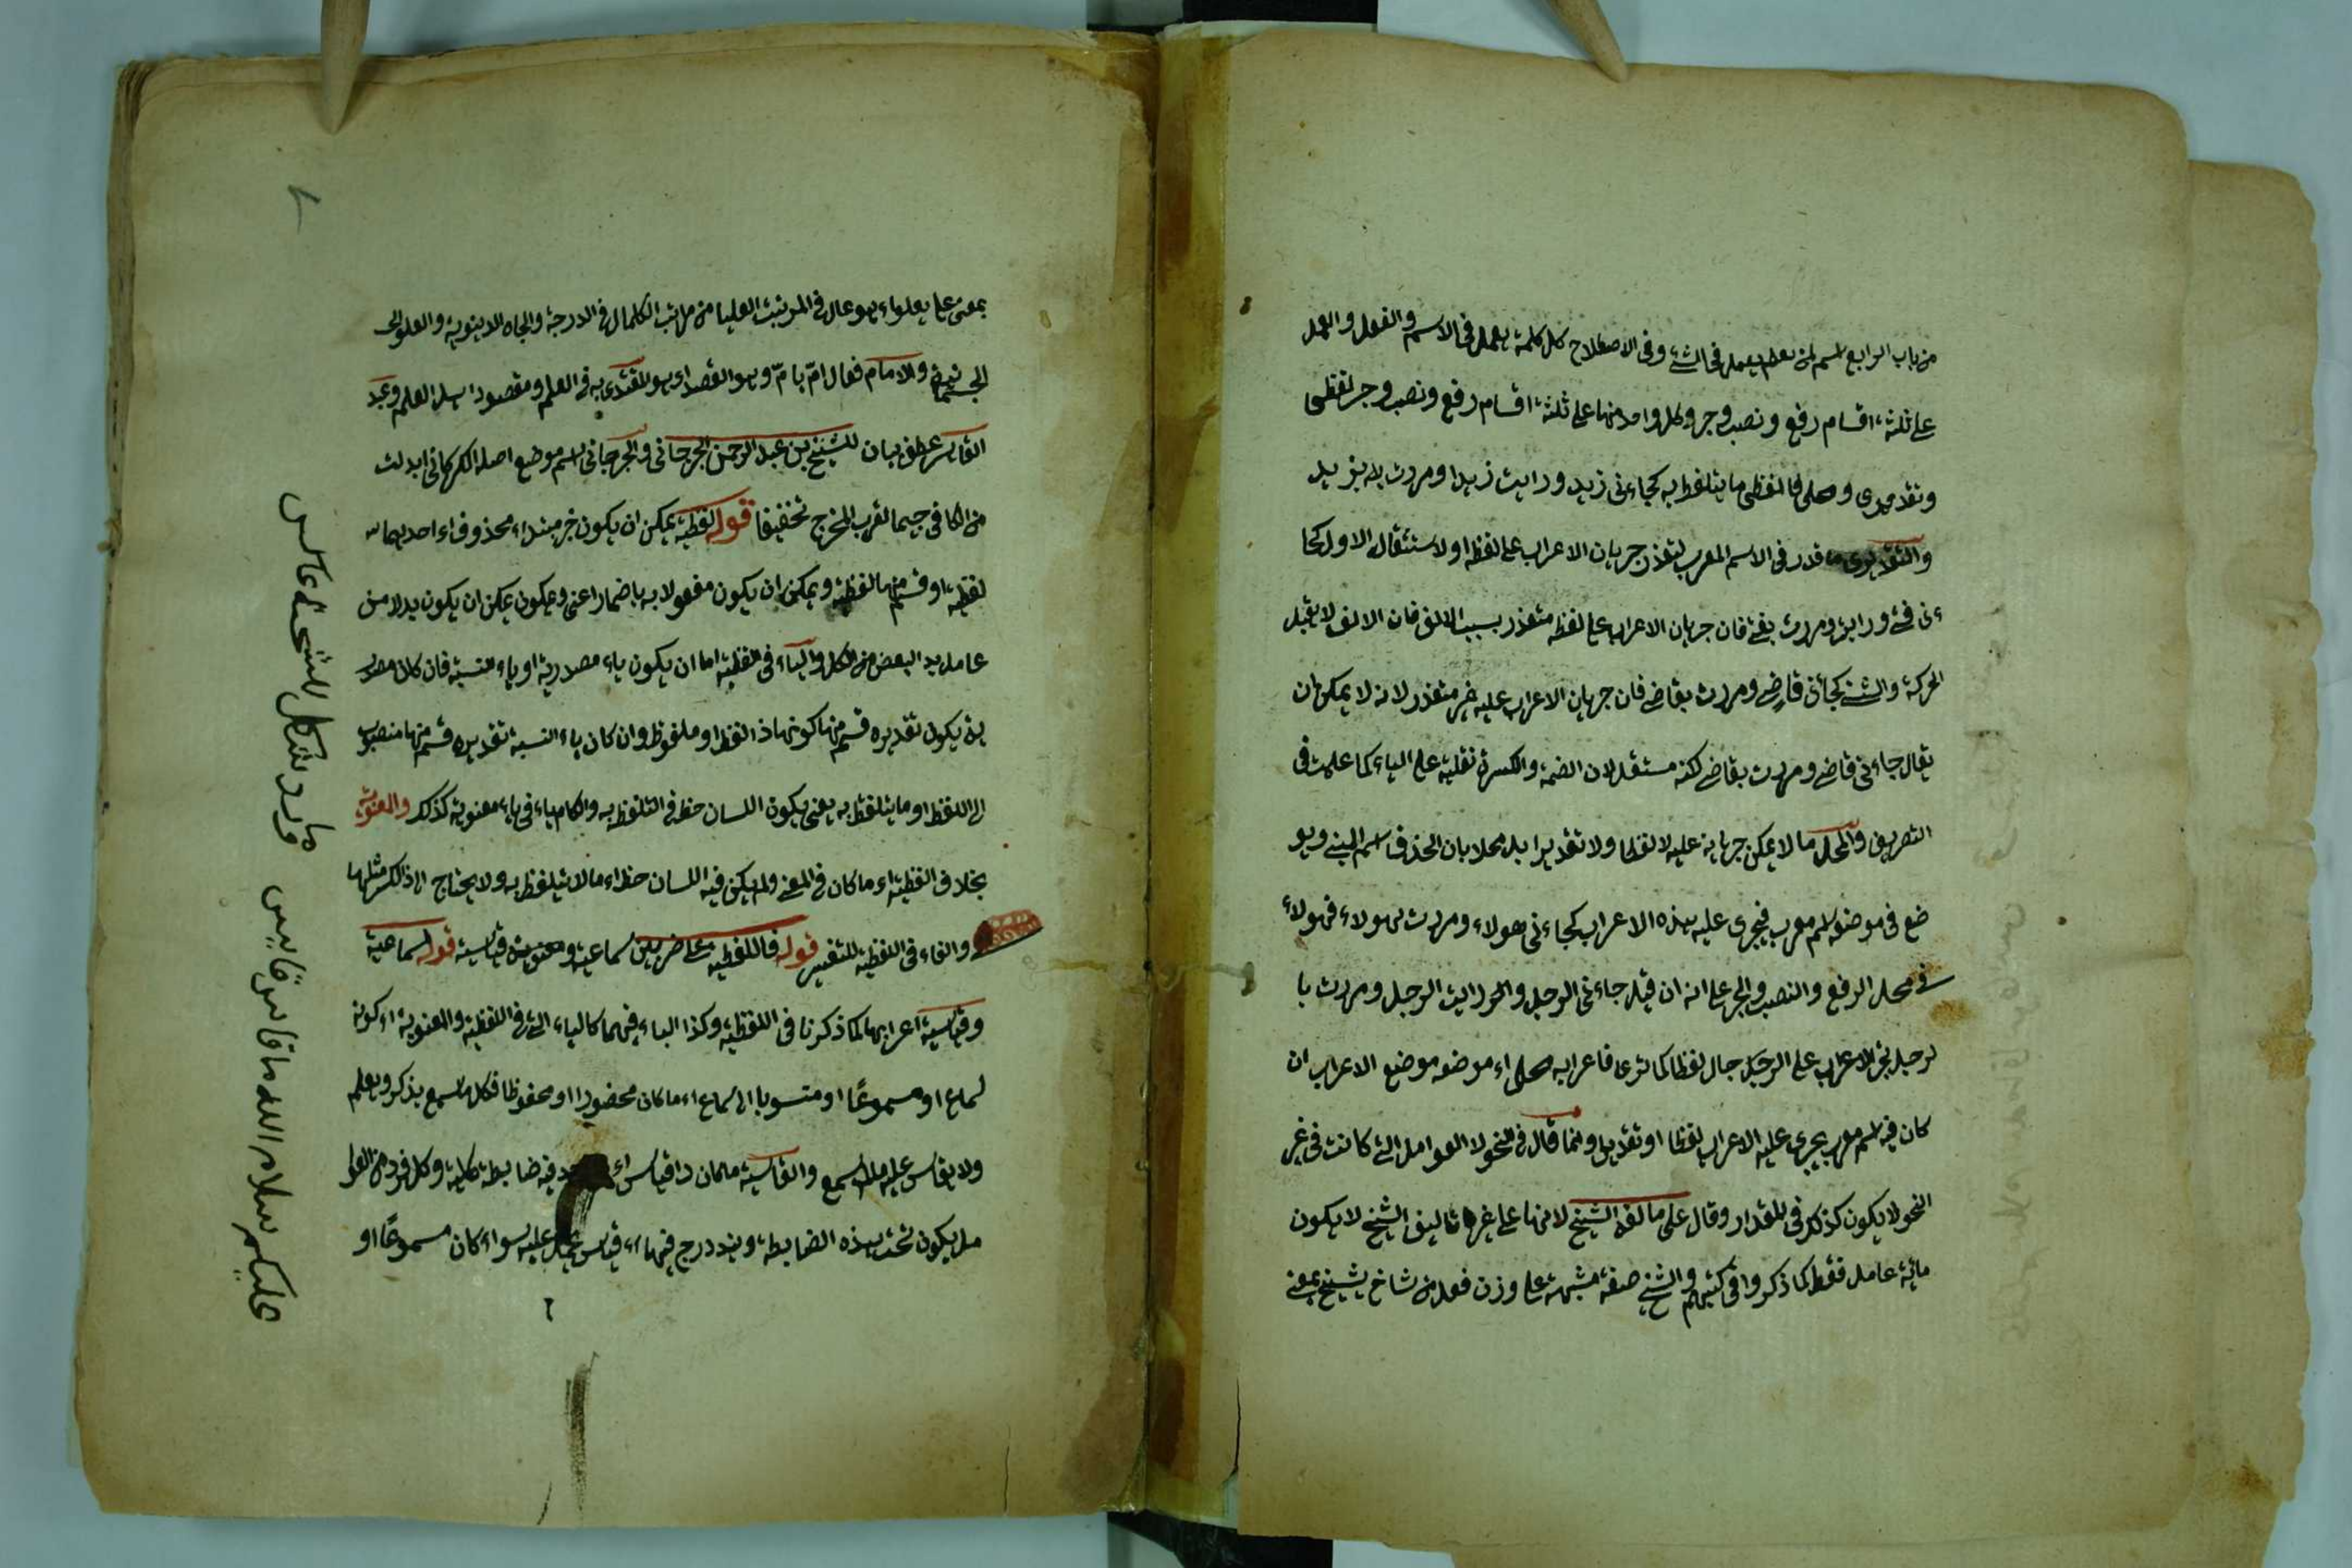 من باب الرابع اسم لمن يعمل في الشيء وفي الاصطلاح كل كلمة يعمل في الاسم والفعل والعمل
على ثلثة اقسام رفع ونصب وجر وكل واحد منها على ثلثة اقسام رفع ونصب وجر لفظي
وتقديري ومحلي فالفظي ما يتلفظ به كجاءني زيد ورايت زيدا ومررت بزيد
والتقديري ما قدر في الاسم المعرب لتعذر جريان الاعراب على لفظه او لاستثقاله الاول كجا
ءني فتى ورايت ومررت بفتى فان جريان الاعراب على لفظه متعذر بسبب الالف فان الالف لا يقبل
الحركة والثني كجائني قاضي ومررت بقاضي فان جريان الاعراب عليه غير متعذر لانه لا يمكن ان
يقال جاءني قاضي ومررت بقاضي لكنه مستثقل لان الضمة والكسرة ثقلية على الياء كما علمت في
التصريف والمحل ما لا يمكن جريانه عليه لا لفظا ولا تقديرا بل محلا بان الخذف اسم المبني وهو
ضع في موضعه اسم معرب فيجري عليه هذه الاعراب كجاءني هولاء ومررت بهولاء فهولاء
في محل الرفع والنصب والجر على انه ان قيل جاءني الرجل ورايت الرجل ومررت با
لرجل بجر الاعراب على الرجل جال لفظا كما ترى فاعرابه محلى اء موضعه موضع الاعراب ان
كان فيه اسم معرب يجري عليه الاعراب لفظا او تقديرا وانما قال في النحو لا العوامل التي كانت في غير
النحو لا يكون كذلك في المقدار وقال على ما الفه الشيخ لانها على غيرها تاليف الشيخ لا يكون
مائة عامل فقط كما ذكروا في كتبهم والشيخ صفة مشبهة على وزن فعل من شاخ يشيخ بمعنى
بمعنى علي يعلواء هو عال في المرتبت العليا من مراتب الكمال في الدرجة والجاه الدينوية والعلو الى
والامام فعال ام يام وهو القصد اء هو المقتدى به في العلم ومقصود اهل العلم وعبد
القاهر عطف بيان للشيخ بن عبد الرحمن الجرجاني والجرجاني اسم موضع اصله الكركاني ابدلت
من الكاف جيما لقرب المخرج تخفيفا قوله لفظية يمكن ان يكون خبر مبتداء محذوف اء احديهما
لفظية او قسم منها لفظية ويمكن ان يكون مفعولا به باضمار اعني ويكون يمكن ان يكون بدلا من
عامل بدل البعض من الكل والياء في لفظية اما ان يكون ياء مصدرية او ياء النسبة فان كان مصدر
ية يكون تقديره قسم منها كونها ذا لفظ او ملفوظ وان كان ياء النسبة تقديره قسم منها منصوب
الى اللفظ او ما يتلفظ به يعنى يكون اللسان حظ في التلفظ به والكام ياء في ياء معنوية كذلك والمعنوية
بخلاف الفظية اء ما كان في المعنى ولم يكن فيه اللسان حظ اء ما لا يتلفظ به ولا يحتاج الى ذلك مثلها
والفاء في اللفظية للتفسير قوله فاللفظية على ضربين سماعية ومعنوية قياسية قوله سماعية
وقياسية اعرابهما كما ذكرنا في اللفظية وكذا الياء فيهما كالياء التي في اللفظية والمعنوية اء كونه
لسماع او مسموعا او منسوبا الى السماع اء ما كان محضورا او محفوظا فكل ما سمع يذكر ويعلم
ولا يقاس عليه ما لم يسمع والقياسية ما كان ذا قياس فيه ضابطة كلية وكل فرد من العوا
مل يكون تحت هذه الضابطة ويندرج فيها اء قياس عليه سواء كان مسموعا او